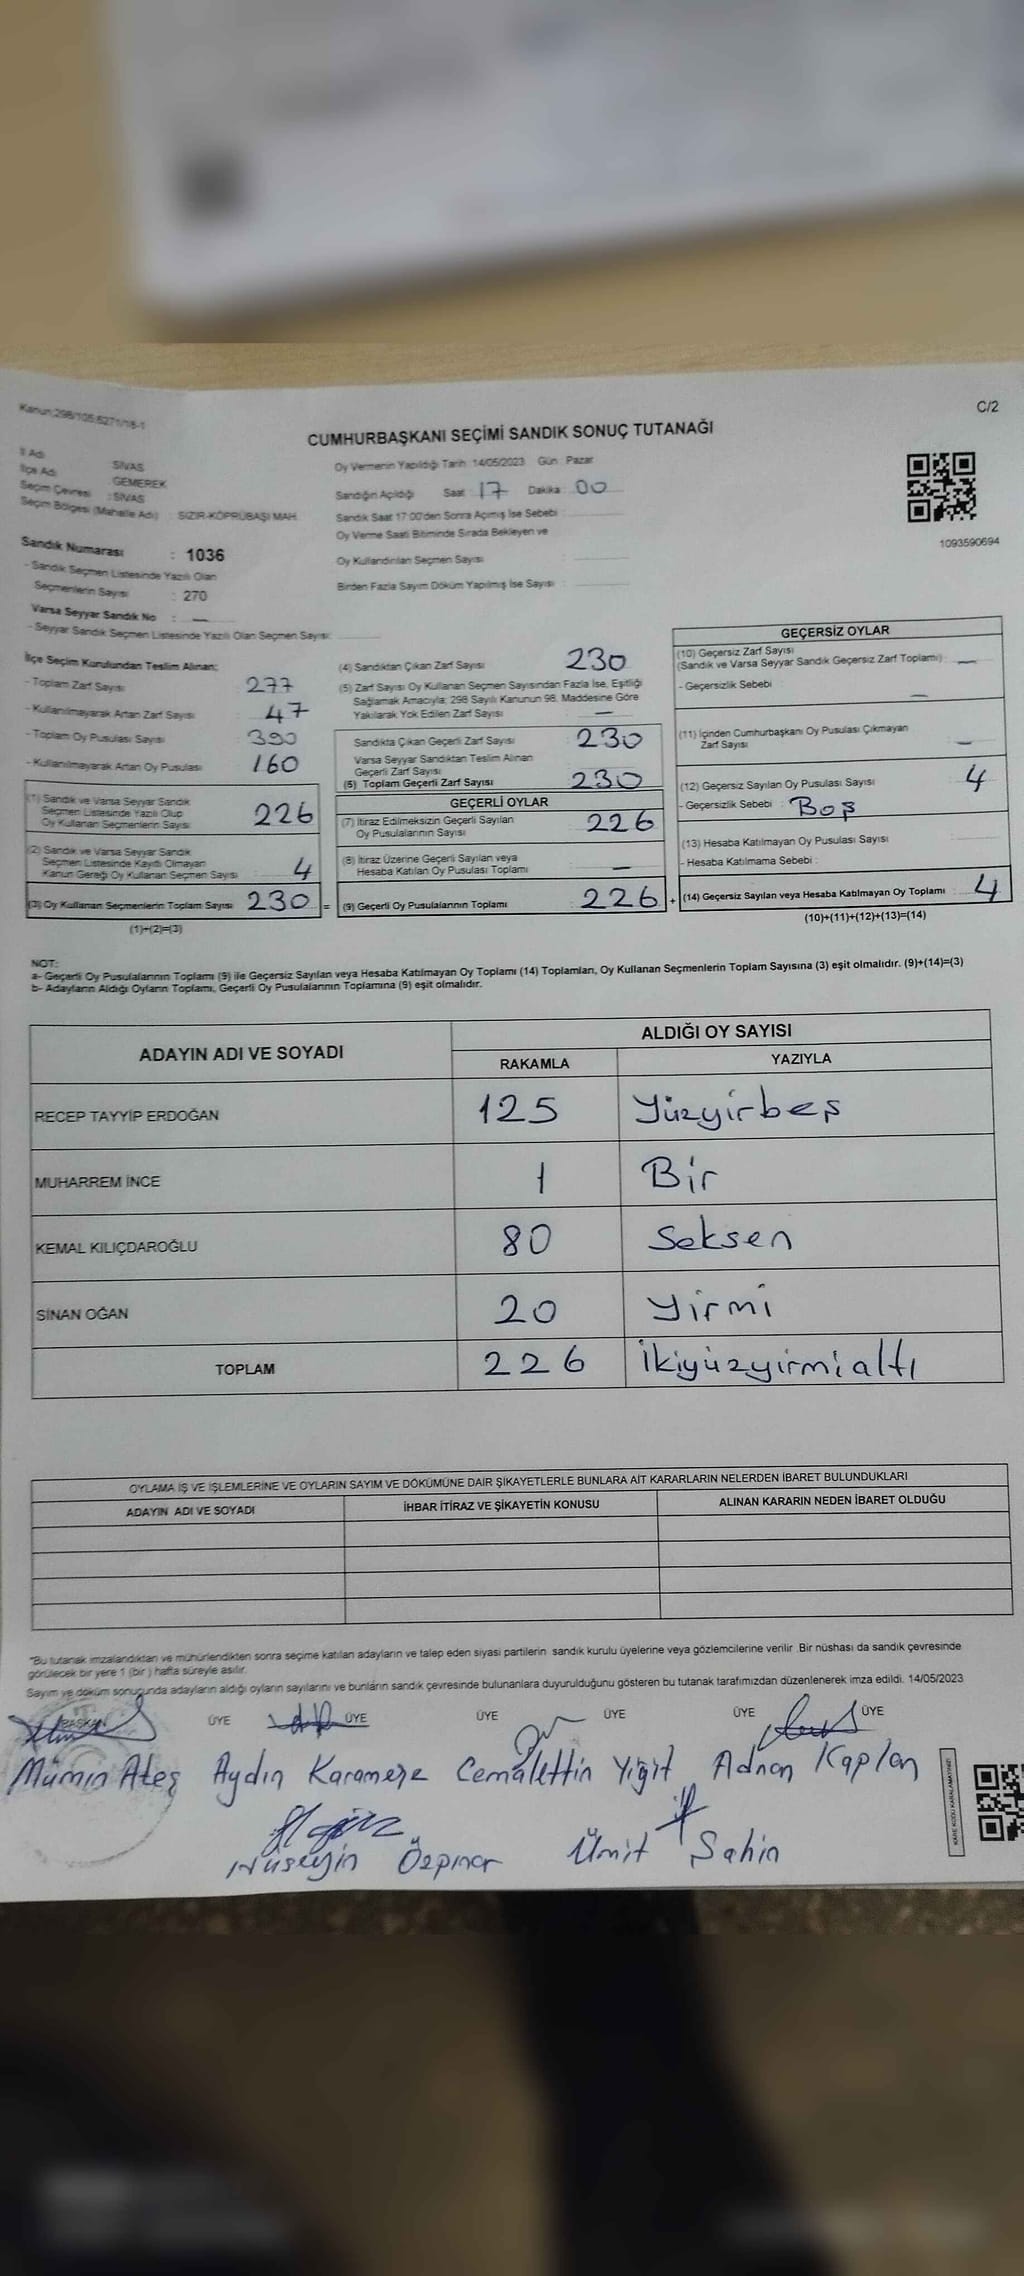 Kanun:298/105,6271/18-1
C/2
CUMHURBAŞKANI SEÇİMİ SANDIK SONUÇ TUTANAĞI
İl Adı
SİVAS
İlçe Adı
GEMEREK
Seçim Çevresi : SİVAS
Seçim Bölgesi (Mahalle Adı) : SIZIR-KÖPRÜBAŞI MAH.
Oy Vermenin Yapıldığı Tarih 14/05/2023 Gün : Pazar
Sandığın Açıldığı Saat 17 Dakika : 00
Sandık Saat 17:00'den Sonra Açımış İse Sebebi :
Oy Verme Saati Bitiminde Sırada Bekleyen ve
Oy Kullandırılan Seçmen Sayısı :
Birden Fazla Sayım Döküm Yapılmış İse Sayısı :
1093590694
Sandık Numarası : 1036
- Sandık Seçmen Listesinde Yazılı Olan
Seçmenlerin Sayısı : 270
Varsa Seyyar Sandık No : —
- Seyyar Sandık Seçmen Listesinde Yazılı Olan Seçmen Sayısı:
İlçe Seçim Kurulundan Teslim Alınan:
- Toplam Zarf Sayısı : 277
- Kullanılmayarak Artan Zarf Sayısı : 47
- Toplam Oy Pusulası Sayısı : 390
- Kullanılmayarak Artan Oy Pusulası : 160
(1) Sandık ve Varsa Seyyar Sandık
Seçmen Listesinde Yazılı Olup
Oy Kullanan Seçmenlerin Sayısı : 226
(2) Sandık ve Varsa Seyyar Sandık
Seçmen Listesinde Kayıtlı Olmayan
Kanun Gereği Oy Kullanan Seçmen Sayısı : 4
(3) Oy Kullanan Seçmenlerin Toplam Sayısı : 230 =
(1)+(2)=(3)
(4) Sandıktan Çıkan Zarf Sayısı : 230
(5) Zarf Sayısı Oy Kullanan Seçmen Sayısından Fazla İse, Eşitliği
Sağlamak Amacıyla; 298 Sayılı Kanunun 98. Maddesine Göre
Yakılarak Yok Edilen Zarf Sayısı : —
Sandıkta Çıkan Geçerli Zarf Sayısı : 230
Varsa Seyyar Sandıktan Teslim Alınan
Geçerli Zarf Sayısı
(6) Toplam Geçerli Zarf Sayısı : 230
GEÇERLİ OYLAR
(7) İtiraz Edilmeksizin Geçerli Sayılan
Oy Pusulalarının Sayısı : 226
(8) İtiraz Üzerine Geçerli Sayılan veya
Hesaba Katılan Oy Pusulası Toplamı : —
(9) Geçerli Oy Pusulalarının Toplamı : 226 +
GEÇERSİZ OYLAR
(10) Geçersiz Zarf Sayısı
(Sandık ve Varsa Seyyar Sandık Geçersiz Zarf Toplamı) : —
- Geçersizlik Sebebi : —
(11) İçinden Cumhurbaşkanı Oy Pusulası Çıkmayan
Zarf Sayısı : —
(12) Geçersiz Sayılan Oy Pusulası Sayısı : 4
- Geçersizlik Sebebi : Boş
(13) Hesaba Katılmayan Oy Pusulası Sayısı :
- Hesaba Katılmama Sebebi :
(14) Geçersiz Sayılan veya Hesaba Katılmayan Oy Toplamı : 4
(10)+(11)+(12)+(13)=(14)
NOT:
a- Geçerli Oy Pusulalarının Toplamı (9) ile Geçersiz Sayılan veya Hesaba Katılmayan Oy Toplamı (14) Toplamları, Oy Kullanan Seçmenlerin Toplam Sayısına (3) eşit olmalıdır. (9)+(14)=(3)
b- Adayların Aldığı Oyların Toplamı, Geçerli Oy Pusulalarının Toplamına (9) eşit olmalıdır.
ADAYIN ADI VE SOYADI
ALDIĞI OY SAYISI
RAKAMLA YAZIYLA
RECEP TAYYİP ERDOĞAN 125 Yüzyirbeş
MUHARREM İNCE 1 Bir
KEMAL KILIÇDAROĞLU 80 Seksen
SİNAN OĞAN 20 Yirmi
TOPLAM 226 İkiyüzyirmialtı
OYLAMA İŞ VE İŞLEMLERİNE VE OYLARIN SAYIM VE DÖKÜMÜNE DAİR ŞİKAYETLERLE BUNLARA AİT KARARLARIN NELERDEN İBARET BULUNDUKLARI
ADAYIN ADI VE SOYADI İHBAR İTİRAZ VE ŞİKAYETİN KONUSU ALINAN KARARIN NEDEN İBARET OLDUĞU
*Bu tutanak imzalandıktan ve mühürlendikten sonra seçime katılan adayların ve talep eden siyasi partilerin sandık kurulu üyelerine veya gözlemcilerine verilir. Bir nüshası da sandık çevresinde
görülecek bir yere 1 (bir) hafta süreyle asılır.
Sayım ve döküm sonucunda adayların aldığı oyların sayılarını ve bunların sandık çevresinde bulunanlara duyurulduğunu gösteren bu tutanak tarafımızdan düzenlenerek imza edildi. 14/05/2023
BAŞKAN ÜYE ÜYE ÜYE ÜYE ÜYE ÜYE
Mümin Ateş Aydın Karameşe Cemalettin Yiğit Adnan Kaplan
Hüseyin Özpınar Ümit Şahin
KARE KODU KARALAMAYINIZ!